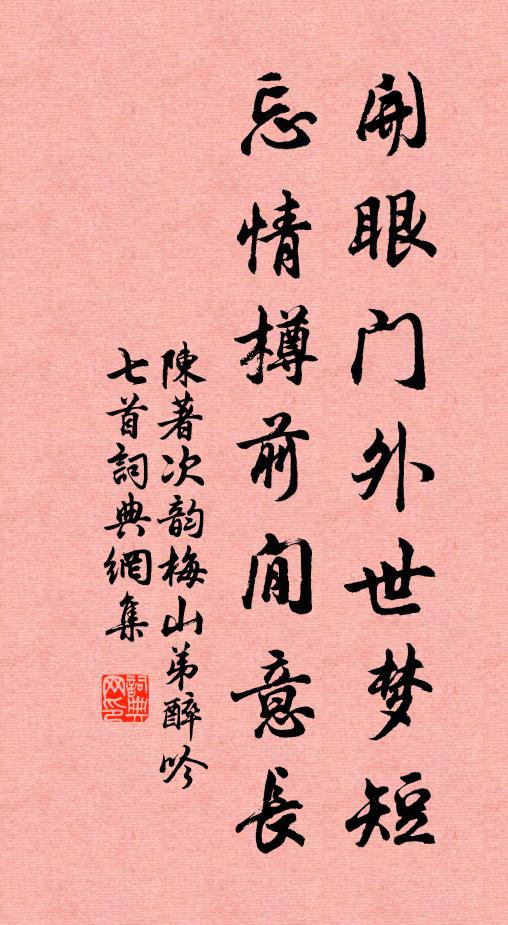 開眼门外世梦短
忘情樽前閒意長
陳著次韵梅山弟醉吟
七首詞典網集
詞典网印